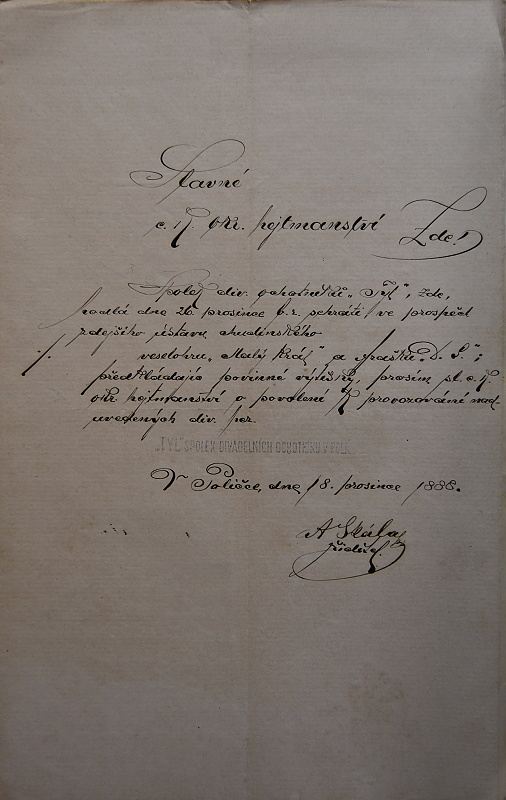 Slavné
c. k. okr. hejtmanství Zde!
Spolek div. ochotníků „Tyl“, zde,
hodlá dne 26. prosince t. r. sehráti ve prospěch
zdejšího ústavu chudinského
veselohru „Malý král“ a frašku „D. S.“;
předkládajíc povinné výtisky, prosím sl. c. k.
okr. hejtmanství o povolení k provozování nad
uvedených div. her.
„TYL“ SPOLEK DIVADELNÍCH OCHOTNÍKŮ V POLIČ
V Poličce, dne 18. prosince 1888.
A Skála
ředitel